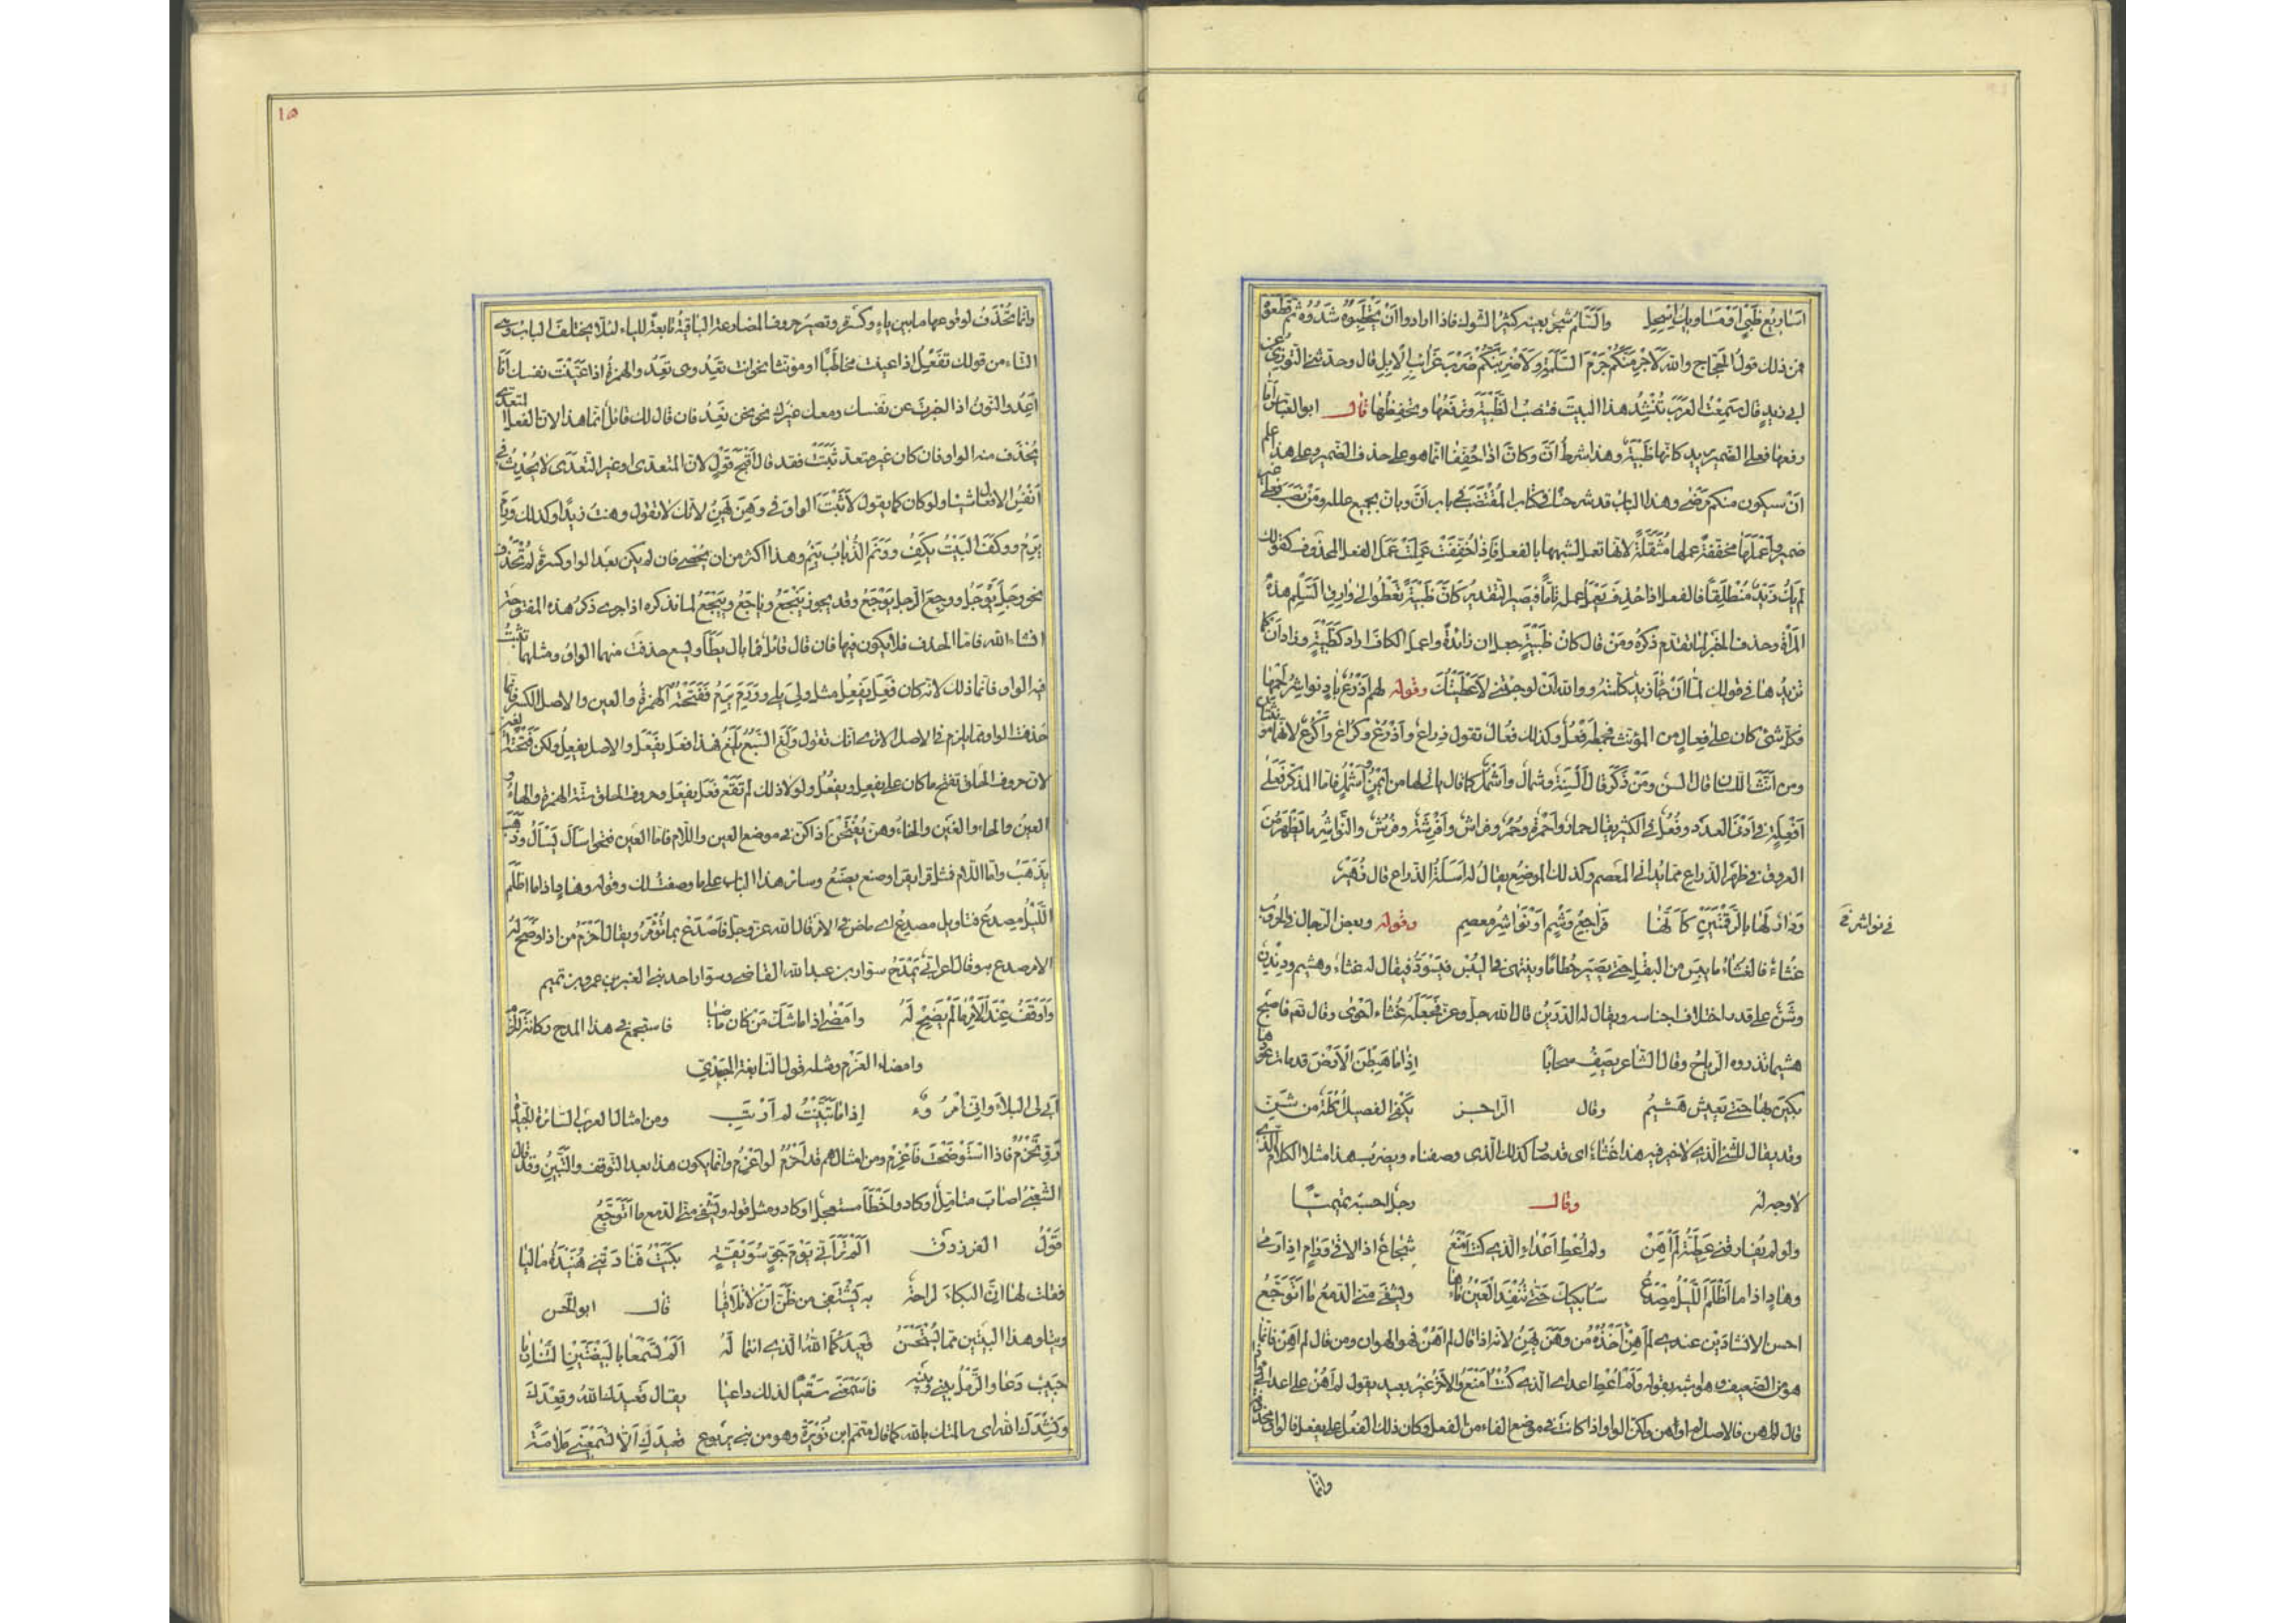 اساريع ظبي او مساويك اسحل والسلم شجر بعينه كثير الشوك فاذا ارادوا ان يحتطبوه شدوه ثم قطعوه
فمن ذلك قول الحجاج والله لاحزمنكم حزم السلمة ولاضربنكم ضرب غرائب الابل قال وحدثني التوزي عن
ابي زيد قال سمعت العرب تنشد هذا البيت فتنصب الظبية وترفعها وتخفضها قال ابو العباس اما
رفعها فعلى الضمير يريد كانها ظبية وهذا شرط ان وكان اذا خففتا انما هو على حذف الضمير وعلى هذا علم
ان سيكون منكم مرضى وهذا الباب قد شرحناه في كتاب المقتضب في باب ان وبان بجميع علله ومن نصب فعلى غير
ضمير واعملها مخففة عملها مثقلة لانها تعمل لشبهها بالفعل فاذا خففت عملت عمل الفعل المحذوف كقولك
لم يك زيد منطلقا فالفعل اذا حذف يعمل عمله تاما فيصير التقدير كان ظبية تعطو الى وارق السلم هذه
المرأة وحذف الخبر لما تقدم ذكره ومن قال كان ظبية جعل ان زائدة واعمل الكاف اراد كظبية وزاد ان كما
تزيد ها في قولك لما ان جاء زيد كلمته ووالله ان لو جئتني لاعطيتك وقوله لهم اذرع باد نواشر لحمها
فكل شئ كان على فعال من المؤنث فجمعه افعل وكذلك فعال تقول ذراع واذرع وكراع واكرع لانهما مؤنثان
ومن انث اللسان قال السن ومن ذكر قال السنة وشمال واشمل كما قال ياتي لها من ايمن واشمل فاما المذكر فعلى
افعلة في ادنى العدد وفعل في الكثير يقال حمار واحمرة وحمر وفراش وافرشة وفرش والنواشر ما تظهر من
العروق في ظهر الذراع مما يداني المعصم وكذلك الموضع يقال له اسلة الذراع قال زهير
ودار لها بالرقمتين كانها مراجع وشم او نواشر معصم وقوله وبعض الرجال في الحروب
في نواشر في
غثاء فالغثاء ما يبس من البقل حتى يصير حطاما وينتهي في اليبس فيسود فيقال له غثاء وهشيم ودندن
وشن على قدر اختلاف اجناسه ويقال له الدرين قال الله جل وعز فجعله غثاء احوى وقال تع فاصبح
هشيما تذروه الرياح وقال الشاعر يصف سحابا اذا ما هبطن الارض قد مات عودها
بكين بها حتى يعيش هشيم وقال الراجز يكفي الفصيل اكلة من ثن
وقد يقال للشئ الذي لا خير فيه هذا غثاء اي قد صار كذلك الذي وصفناه ويضرب هذا مثلا للكلام الذي
لا وجه له وقال رجل احسبه تميميا
ولو لم يفارقني عطية لم اهن ولم اعط اعدائي الذي كنت امنع شجاع اذا لاقى ورام اذا رمى
وهاد اذا ما اظلم الليل مصدع سابكيك حتى تنفد العين ماءها ويشفي مني الدمع ما اتوجع
احسن الانشادين عندي لم اهن اخذه من وهن يهن لانه اذا قال لم اهن فهو الهوان ومن قال لم اهن فانما
هو من الضعيف وهو اشبه بقوله ولم اعط اعدائي الذي كنت امنع والاخر غير بعيد يقول لم اهن على اعدائي فمن
قال لم اهن فالاصل لم اوهن ولكن الواو اذا كانت في موضع الفاء من الفعل وكان ذلك الفعل على يفعل فالواو محذوفة
وانما
١٥
وانما تحذف لوقوعها ما بين ياء وكسرة وتصير حروف المضارعة الباقية تابعة للياء لئلا يختلف الباب وهي
التاء من قولك تفعل اذا عنيت مخاطبا او مؤنثا نحو انت تعد وهي تعد والهمزة اذا عنيت نفسك انا
اعد والنون اذا اخبرت عن نفسك ومعك غيرك نحو نحن نعد فان قال لك قائل انما هذا لان الفعل المتعدي
يحذف منه الواو فان كان غير متعد ثبتت فقد قال اقبح قول لان المتعدي او غير المتعدي لا يحدث في
انفس الافعال شيئا ولو كان كما يقول لاثبت الواو في وهن يهن لانك لا تقول وهنت زيدا وكذلك ورم
يرم ووكف البيت يكف وونم الذباب ينم وهذا اكثر من ان يحصى فان لم يكن بعد الواو كسرة لم تحذف
نحو وجل يوجل ووجع الرجل يوجع وقد يجوز ييجع وياجع وييجع لما نذكره اذا جرى ذكر هذه المفتوحة
انشاء الله فاما الحذف فلا يكون فيها فان قال قائل فما بال يطأ ويسع حذفت منهما الواو ومثلهما تثبت
فيه الواو فانما ذلك لانه كان فعل يفعل مثل ولي يلي وورم يرم ففتحته الهمزة والعين والاصل الكسر فانما
حذفت الواو مما يلزم في الاصل الا ترى انك تقول ولغ السبع يلغ فهذا فعل يفعل والاصل يفعل ولكن فتحته الغين
لان حروف الحلق تفتح ما كان على يفعل ويفعل ولولا ذلك لم تقع فعل يفعل وحروف الحلق ستة الهمزة والهاء و
العين والحاء والغين والخاء وهن يفتحن اذا كن في موضع العين واللام فاما العين فنحو سأل يسأل وذهب
يذهب واما اللام فمثل قرأ يقرأ وصنع يصنع وسائر هذا الباب على ما وصفت لك وقوله وهاد اذا ما اظلم
الليل مصدع فتاويل مصدع اي ماض في الامر قال الله عز وجل فاصدع بما تؤمر ويقال احزم من اذا وضح له
الامر صدع به وقال اعرابي يمتدح سوار بن عبد الله القاضي وسوار احد بني العنبر بن عمرو بن تميم
واوقف عند الامر ما لم يضح له وامضى اذا ما شك من كان ماضيا فاستجمع في هذا المدح ركانة الحزم
وامضاء العزم ومثله قول النابغة الجعدي
ابى لي البلاء واني امرؤ اذا ما تبينت لم ارتب ومن امثال العرب السائرة الجيدة
رو بحزم فاذا استوضحت فاعزم ومن امثالهم قد احزم لو اعزم وانما يكون هذا بعد التوقف والتبين وقد قال
الشعبي اصاب متامل او كاد واخطأ مستعجل او كاد ومثل قوله ويشفي مني الدمع ما اتوجع
قول الفرزدق الم تر اني يوم جو سويقة بكيت فنادتني هنيدة ماليا
فقلت لها ان البكاء لراحة به يشتفي من ظن ان لا تلاقيا قال ابو الحسن
ويتلو هذا البيتين مما يستحسن قعيدكما الله الذي انتما له الم تسمعا بالبيضتين المناديا
حبيب دعا والرمل بيني وبينه فاسمعني سقيا لذلك داعيا يقال قعيدك الله وقعدك
ونشدك الله اي سالتك بالله كما قال متمم ابن نويرة وهو من بني يربوع قعيدك الا تسمعيني ملامة